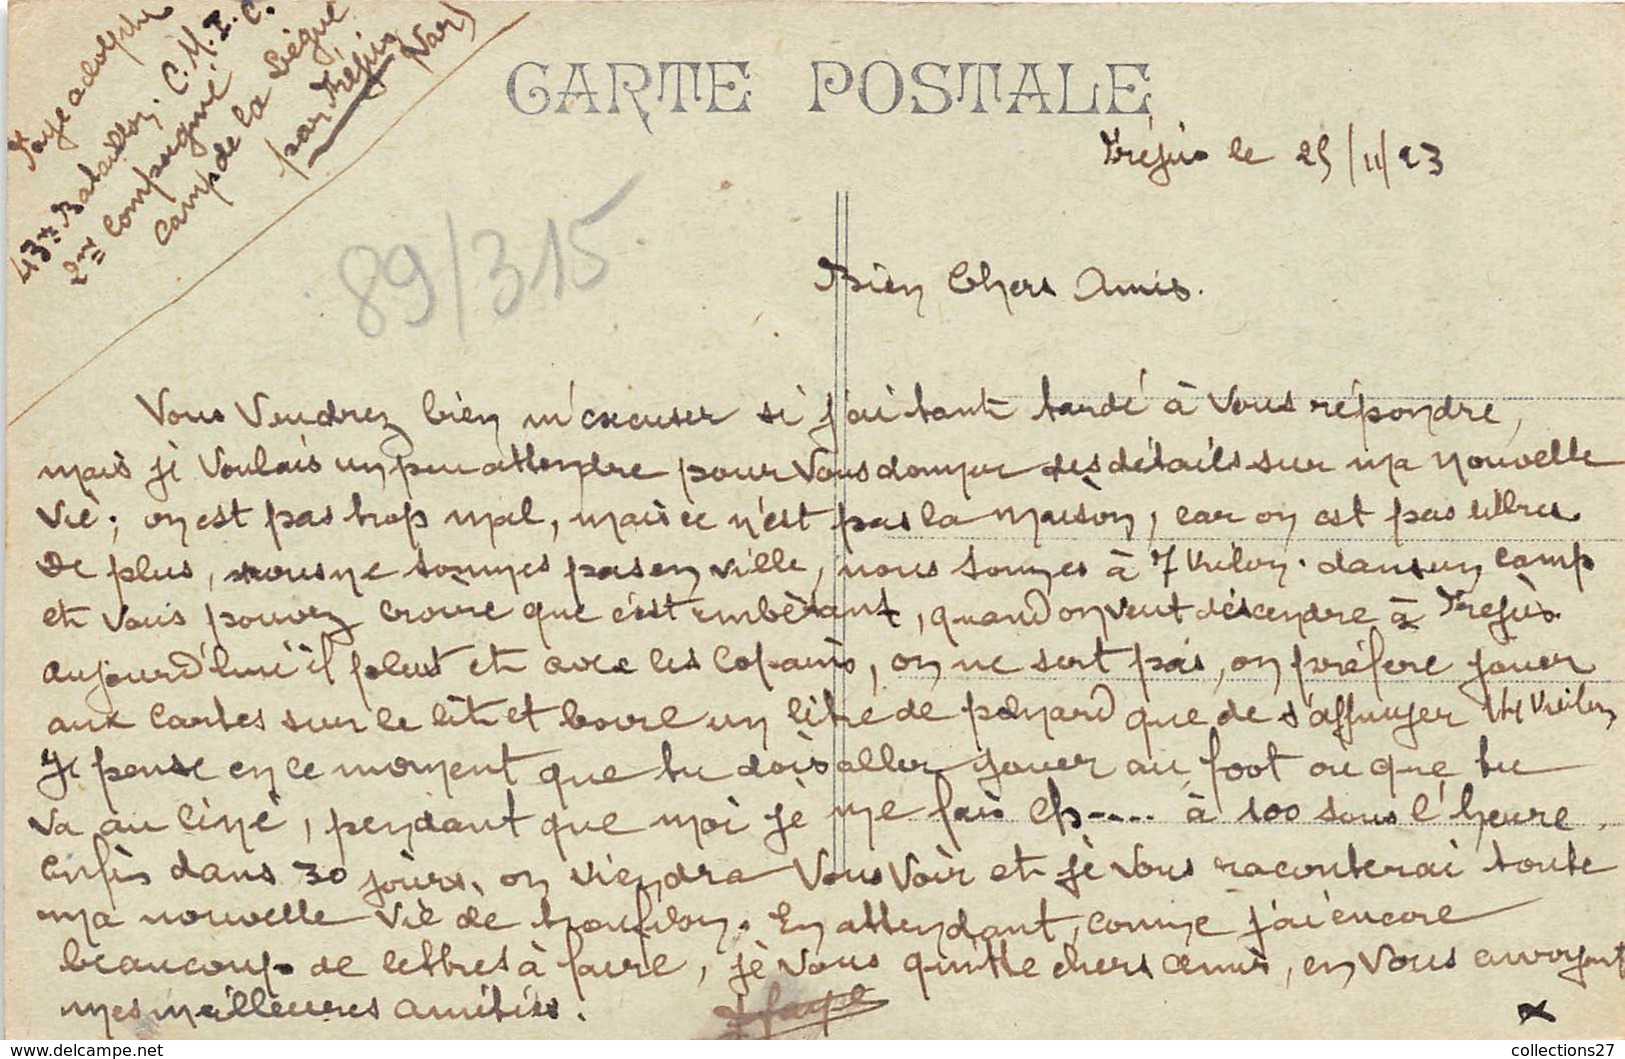 Faye adolphe
43me Bataillon. C.M.I.C.
2me Compagnie
Camp de la Lègue
par Fréjus
(Var)
CARTE POSTALE
Fréjus le 25/11/23
89/315
Bien Chers Amis.
Vous Voudrez bien m'excuser si j'ai tant tardé à Vous répondre,
mais je Voulais un peu attendre pour Vous donner des détails sur ma nouvelle
Vie; on est pas trop mal, mais ce n'est pas la maison, car on est pas libres
De plus, nous ne sommes pas en ville, nous sommes à 7 kilom. dans un camp
et Vous pouvez croire que c'est embètant, quand on veut déscendre à Fréjus.
aujourd'hui il pleut et avec les Copains, on ne sort pas, on préfere jouer
aux Cartes sur le lit et boire un litre de pinard que de s'appuyer 14 kilom
Je pense en ce moment que tu dois aller jouer au foot ou que tu
va au ciné, pendant que moi je me fais ch---- à 100 sous l'heure.
Enfin dans 30 jours, on viendra Vous Voir et je Vous raconterai toute
ma nouvelle Vie de troufion. En attendant, comme j'ai encore
beaucoup de lettres à faire, je Vous quitte chers amis, en Vous envoyant
mes meilleures amitiés.
Faye
collections27